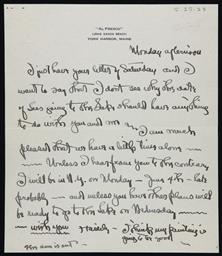 5-23-23
"AL FRESCO"
LONG SANDS BEACH
YORK HARBOR, MAINE
Monday afternoon
I just have your letter of Saturday and I
want to say that I don't see why the date
of Sees going to the Lake should have anything
to do with you and me — I am much
pleased that we have a little time alone —
Unless I hear from you to the contrary
I will be in N.Y. on Monday – June 4th – late
probably – and unless you have other plans will
be ready to go to the Lake on Wednesday —
with you
I think my painting is
going to be good